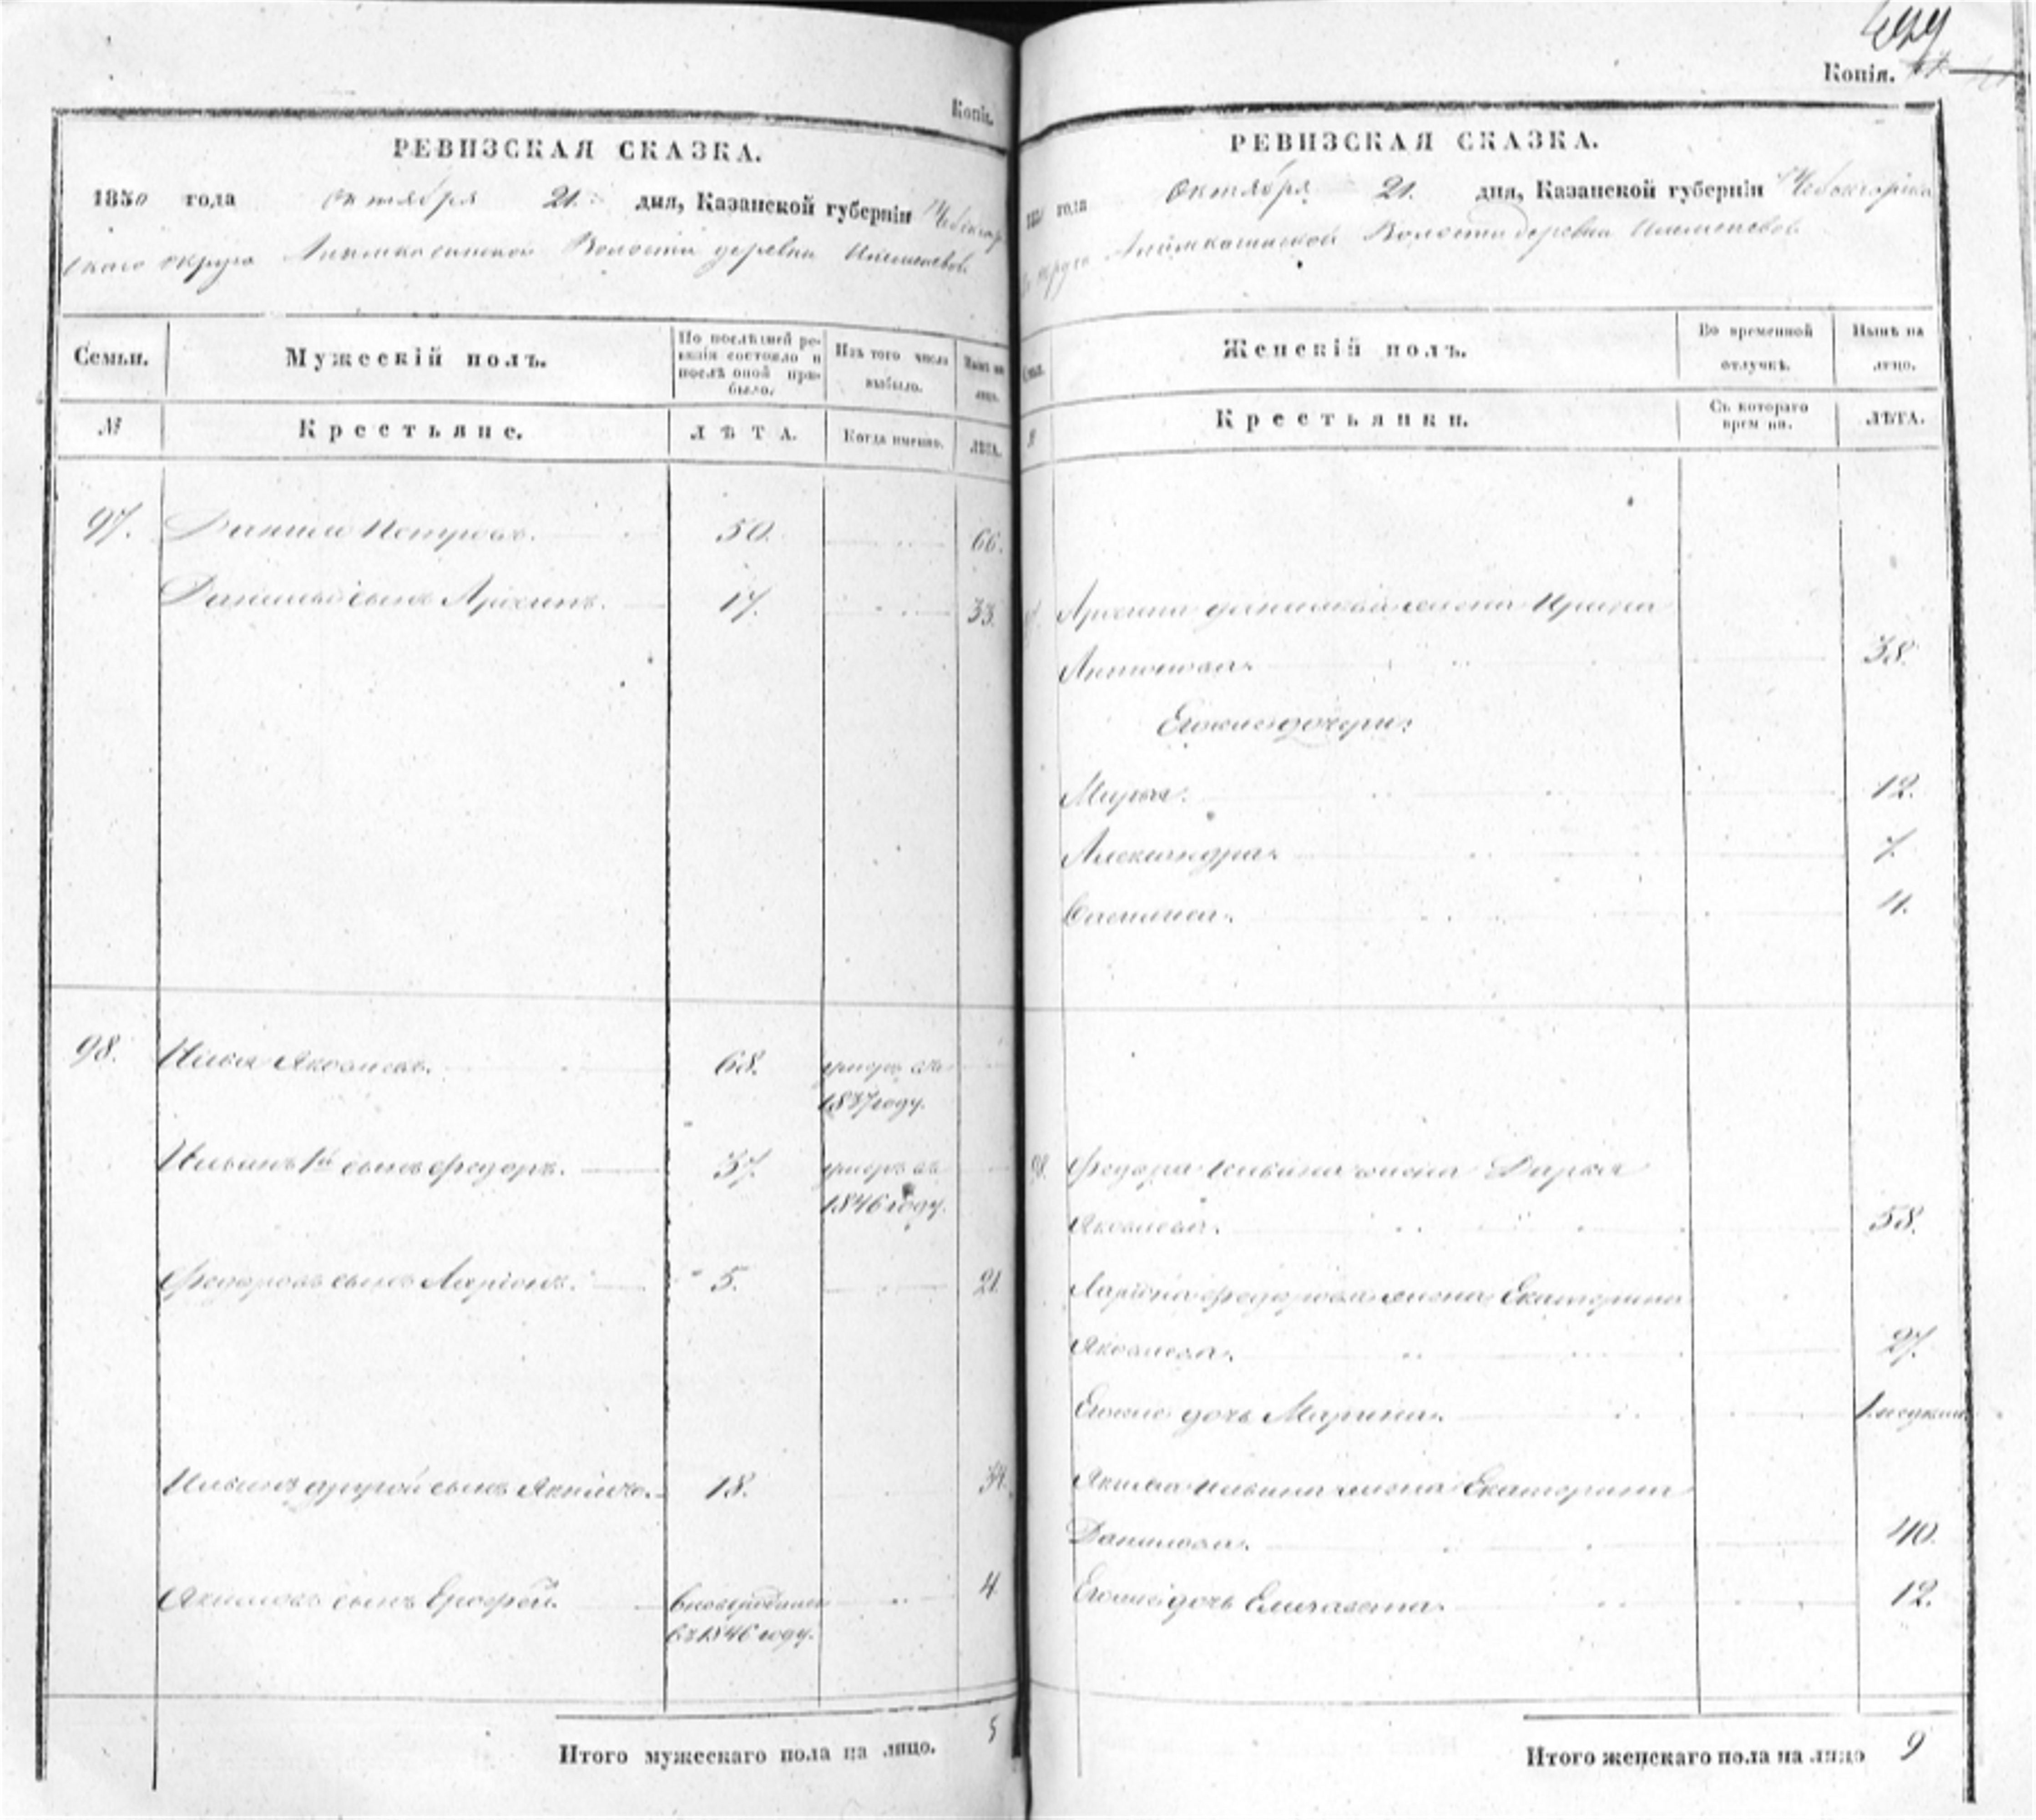 Копія.
РЕВИЗСКАЯ СКАЗКА.
1850 года октября 21. дня, Казанской губерніи Чебоксар
скаго округа Волости деревни
Семьи.
Мужескій полъ.
По послѣдней ре-
визіи состояло и
послѣ оной при-
было.
Изъ того числа
выбыло.
Нынѣ на
лицо.
№
Крестьяне.
ЛѢТА.
Когда именно.
ЛѢТА.
97. Данила Петровъ. 50. 66.
Данилы сынъ Архипъ. 17. 33.
98. Илья Яковлевъ. 68. умеръ въ
1837 году.
Ильинъ 1й сынъ Федоръ. 37. умеръ въ
1846 году.
Федоровъ сынъ Ларіонъ. 5. 21.
Ильинъ другой сынъ Якимъ. 18. 34.
Якимовъ сынъ Ерофей. 4
въ 1846 году.
Итого мужескаго пола на лицо. 5
Копія.
РЕВИЗСКАЯ СКАЗКА.
года октября 21. дня, Казанской губерніи Чебоксарска
округа Волости деревни
Женскій полъ.
Во временной
отлучкѣ.
Нынѣ на
лицо.
Крестьянки.
Съ котораго
времени.
ЛѢТА.
Архипа Данилова жена Ирина
Антонова. 38.
Егоже дочери:
Марья. 12.
Александра. 7.
4.
98. Федора Ильина жена Дарья
Яковлева. 58.
Ларіона Федорова жена Екатерина
Яковлева. 27.
Егоже дочь Марина. 1.
Якима Ильина жена Екатерина
Данилова. 40.
Егоже дочь Елизавета. 12.
Итого женскаго пола на лицо 9